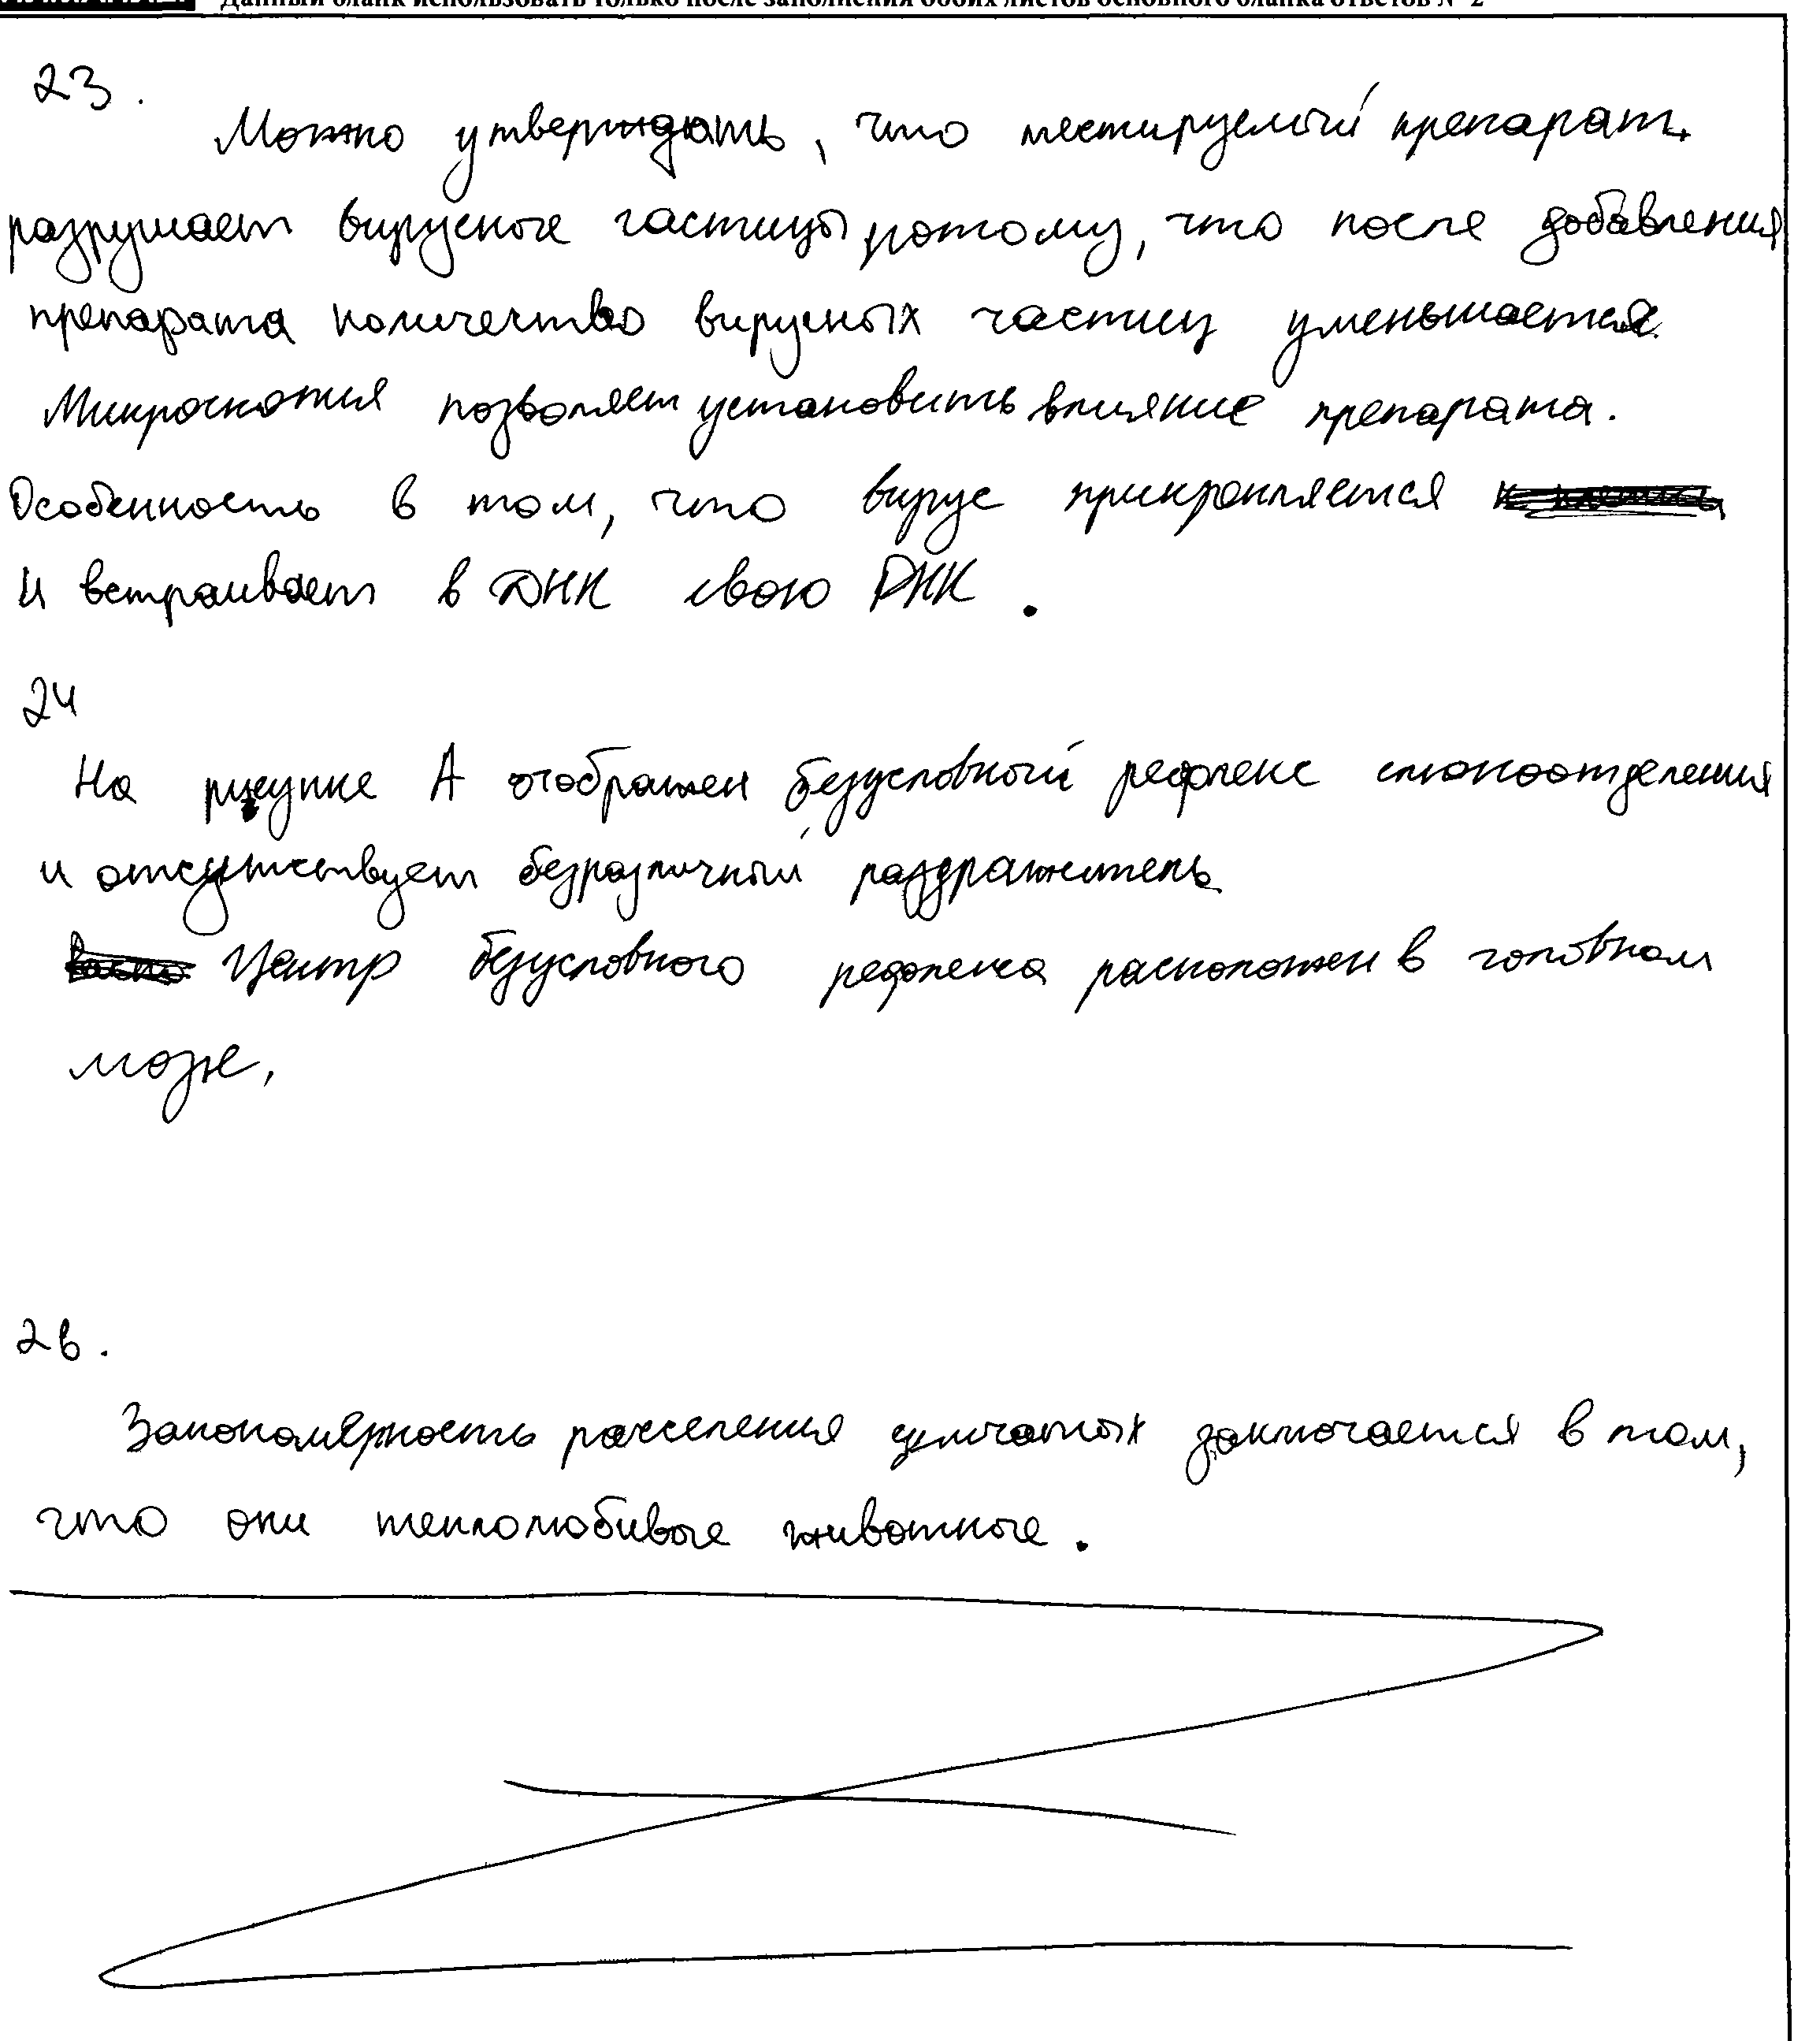 Данный бланк использовать только после заполнения обоих листов основного бланка ответов № 2
23.
Можно утверждать, что тестируемый препарат
разрушает вирусные частицы потому, что после добавления
препарата количество вирусных частиц уменьшается.
Микроскопия позволяет установить влияние препарата.
Особенность в том, что вирус прикрепляется
и встраивает в ДНК свою РНК.
24
На рисунке А отображен безусловный рефлекс слюноотделения
и отсутствует безразличный раздражитель
Центр безусловного рефлекса расположен в головном
мозге,
26.
Закономерность расселения чатых заключается в том,
что они теплолюбивые животные.